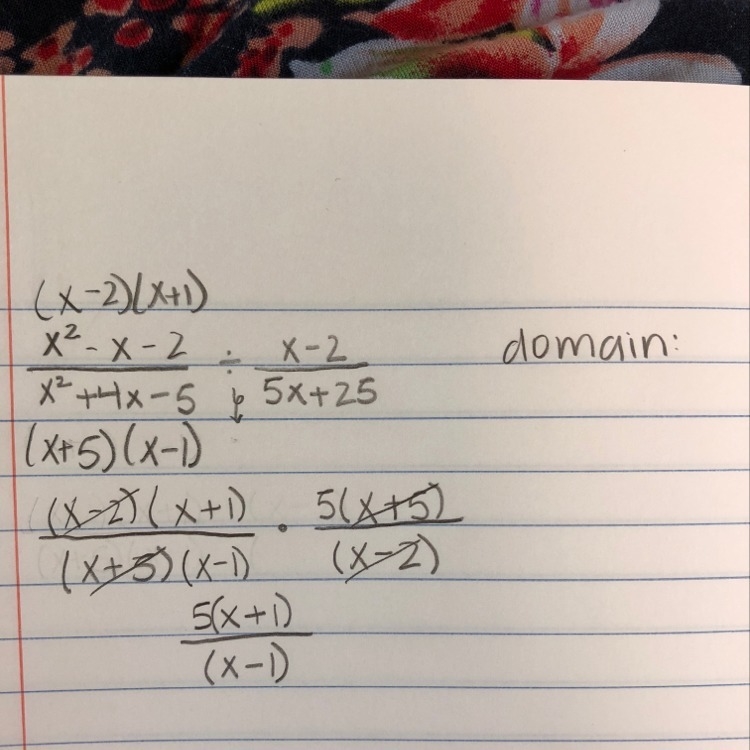 (x-2)(x+1)
x² - x - 2 / x² + 4x - 5 ÷ x-2 / 5x+25 domain:
(x+5)(x-1)
(x-2)(x+1) / (x+5)(x-1) · 5(x+5) / (x-2)
5(x+1) / (x-1)